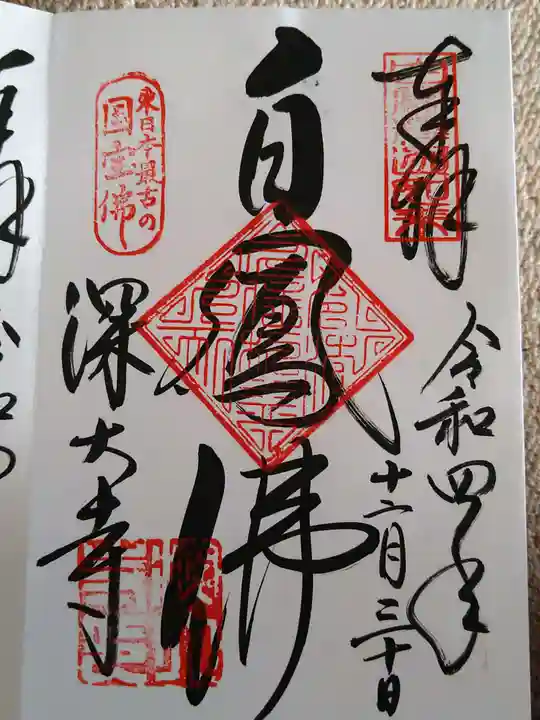 奉拝
令和四年
十二月三十日
白鳳佛
東日本最古の
国宝佛
深大寺